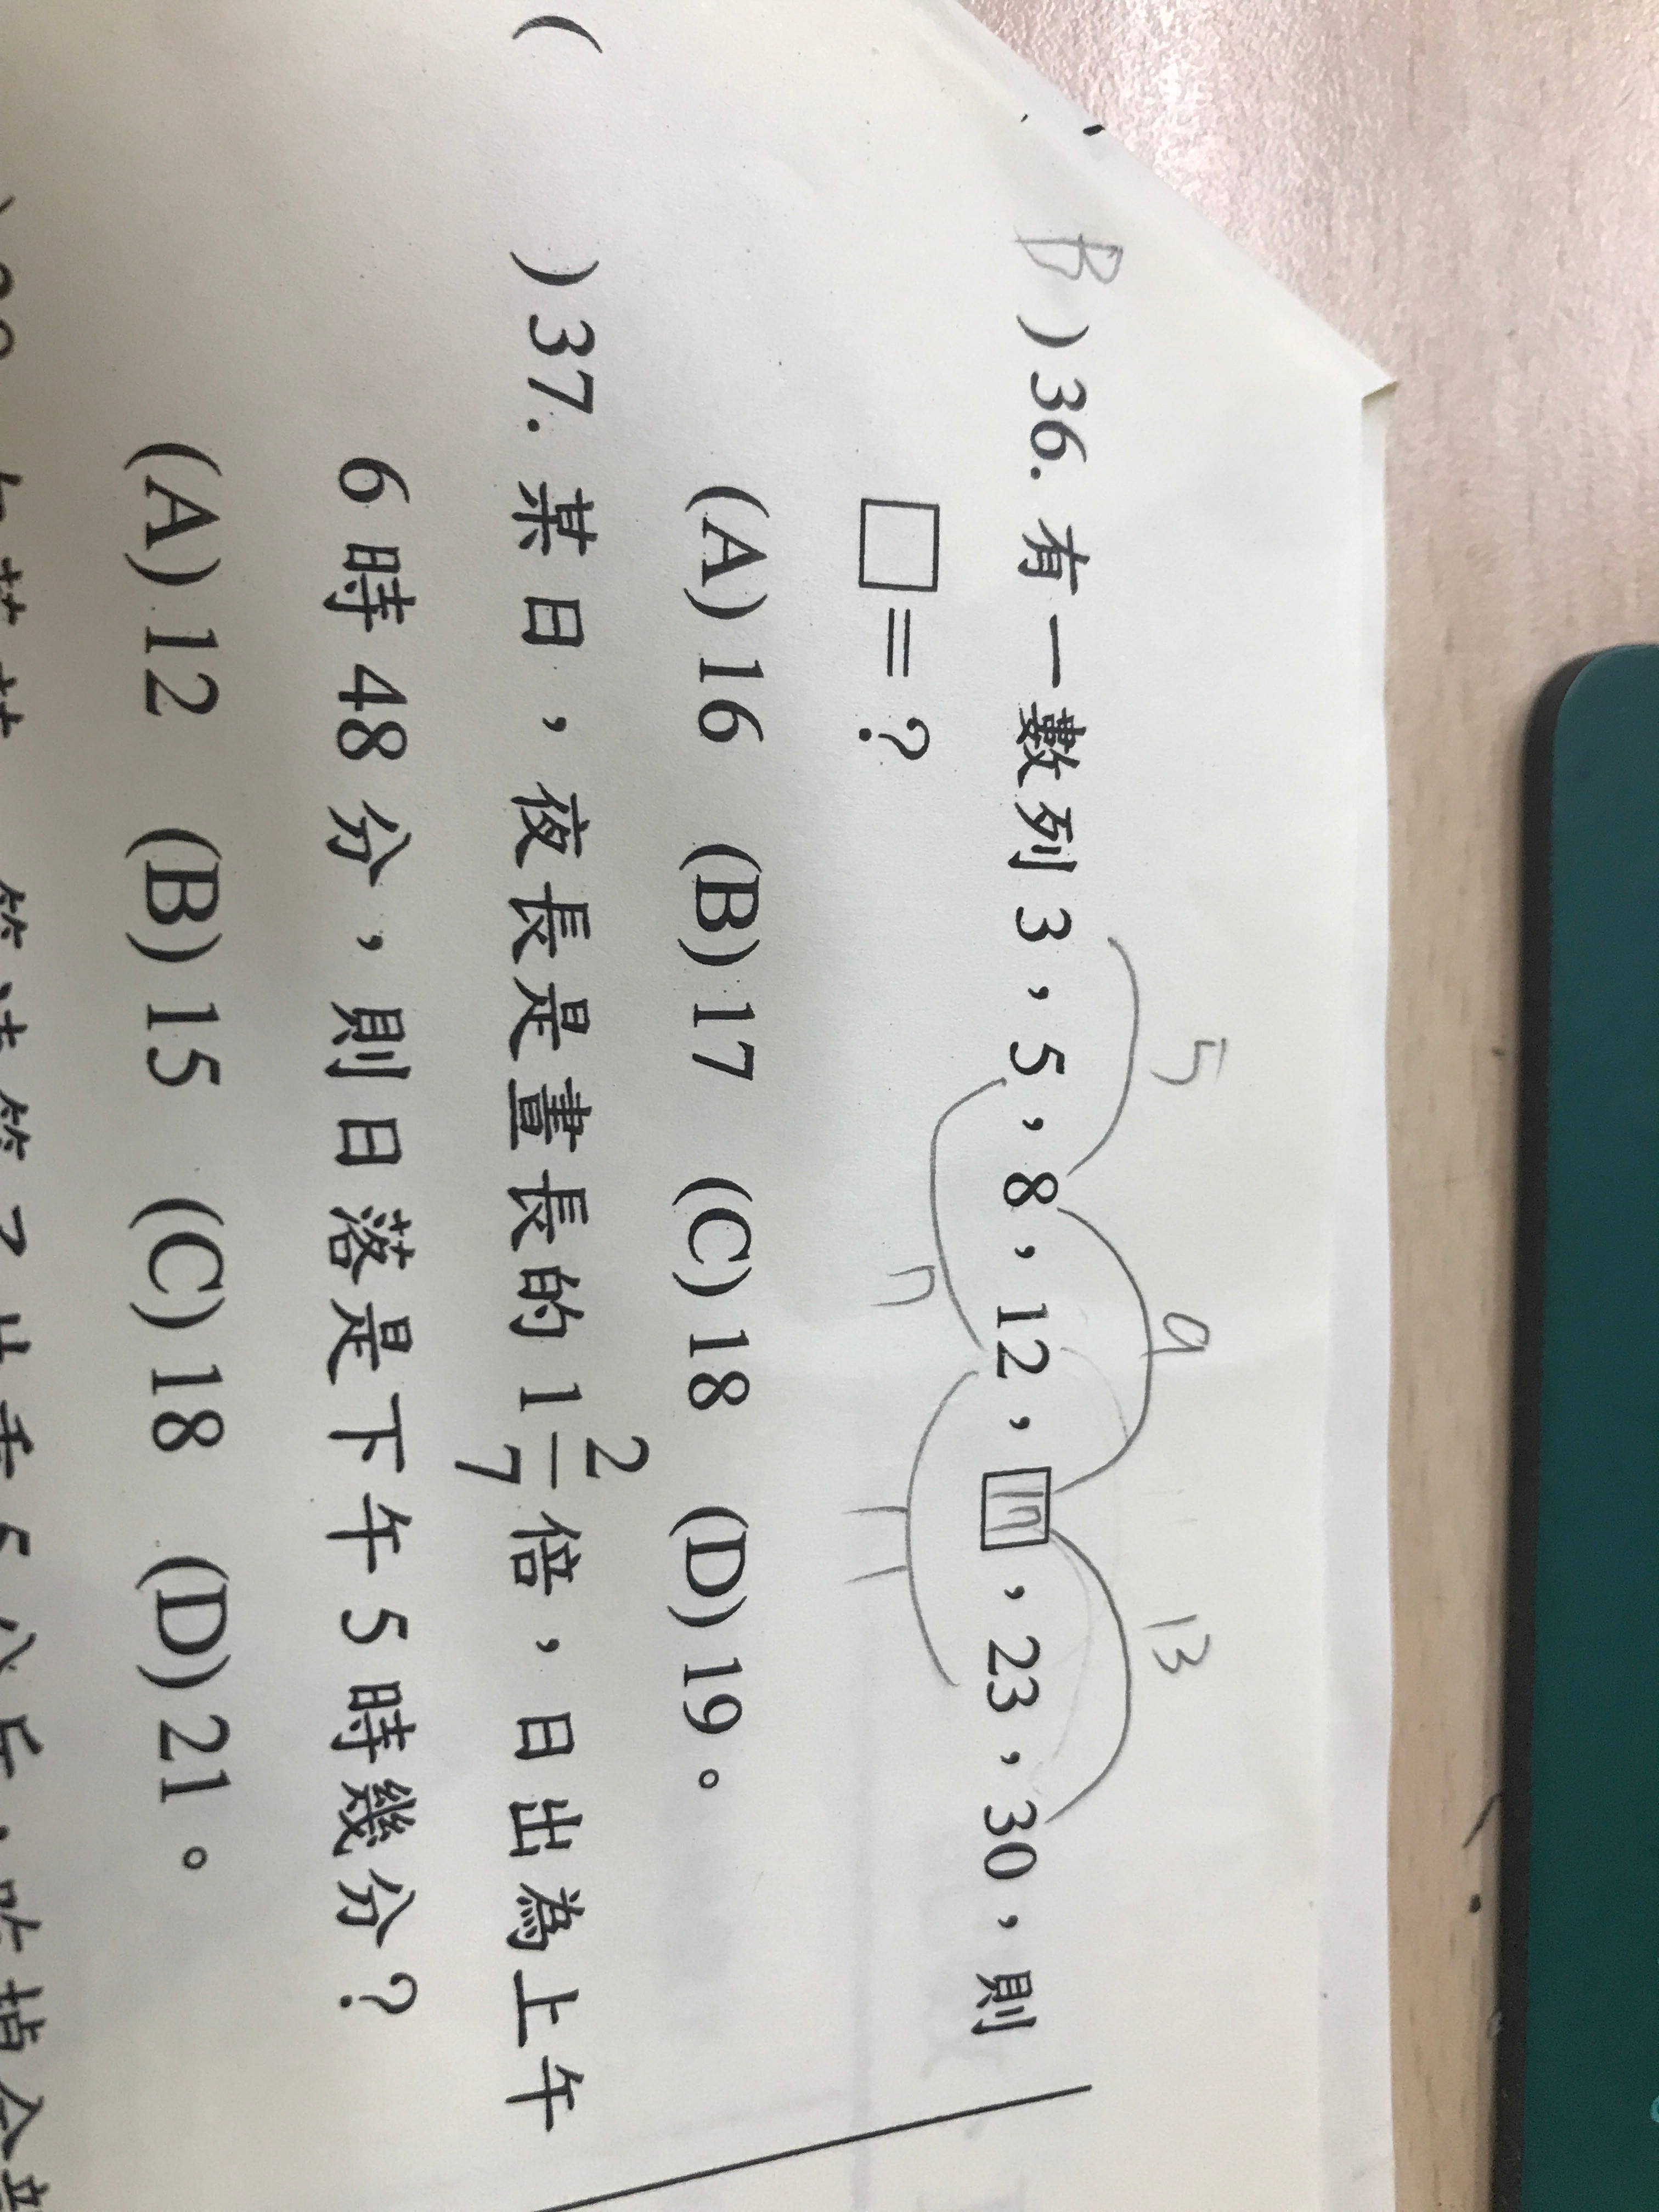 5 9 13
B ) 36. 有一數列 3，5，8，12，□，23，30，則
17
7 11
□＝？
(A) 16 (B) 17 (C) 18 (D) 19。
( ) 37. 某日，夜長是晝長的 1 2/7 倍，日出為上午
6 時 48 分，則日落是下午 5 時幾分？
(A) 12 (B) 15 (C) 18 (D) 21。